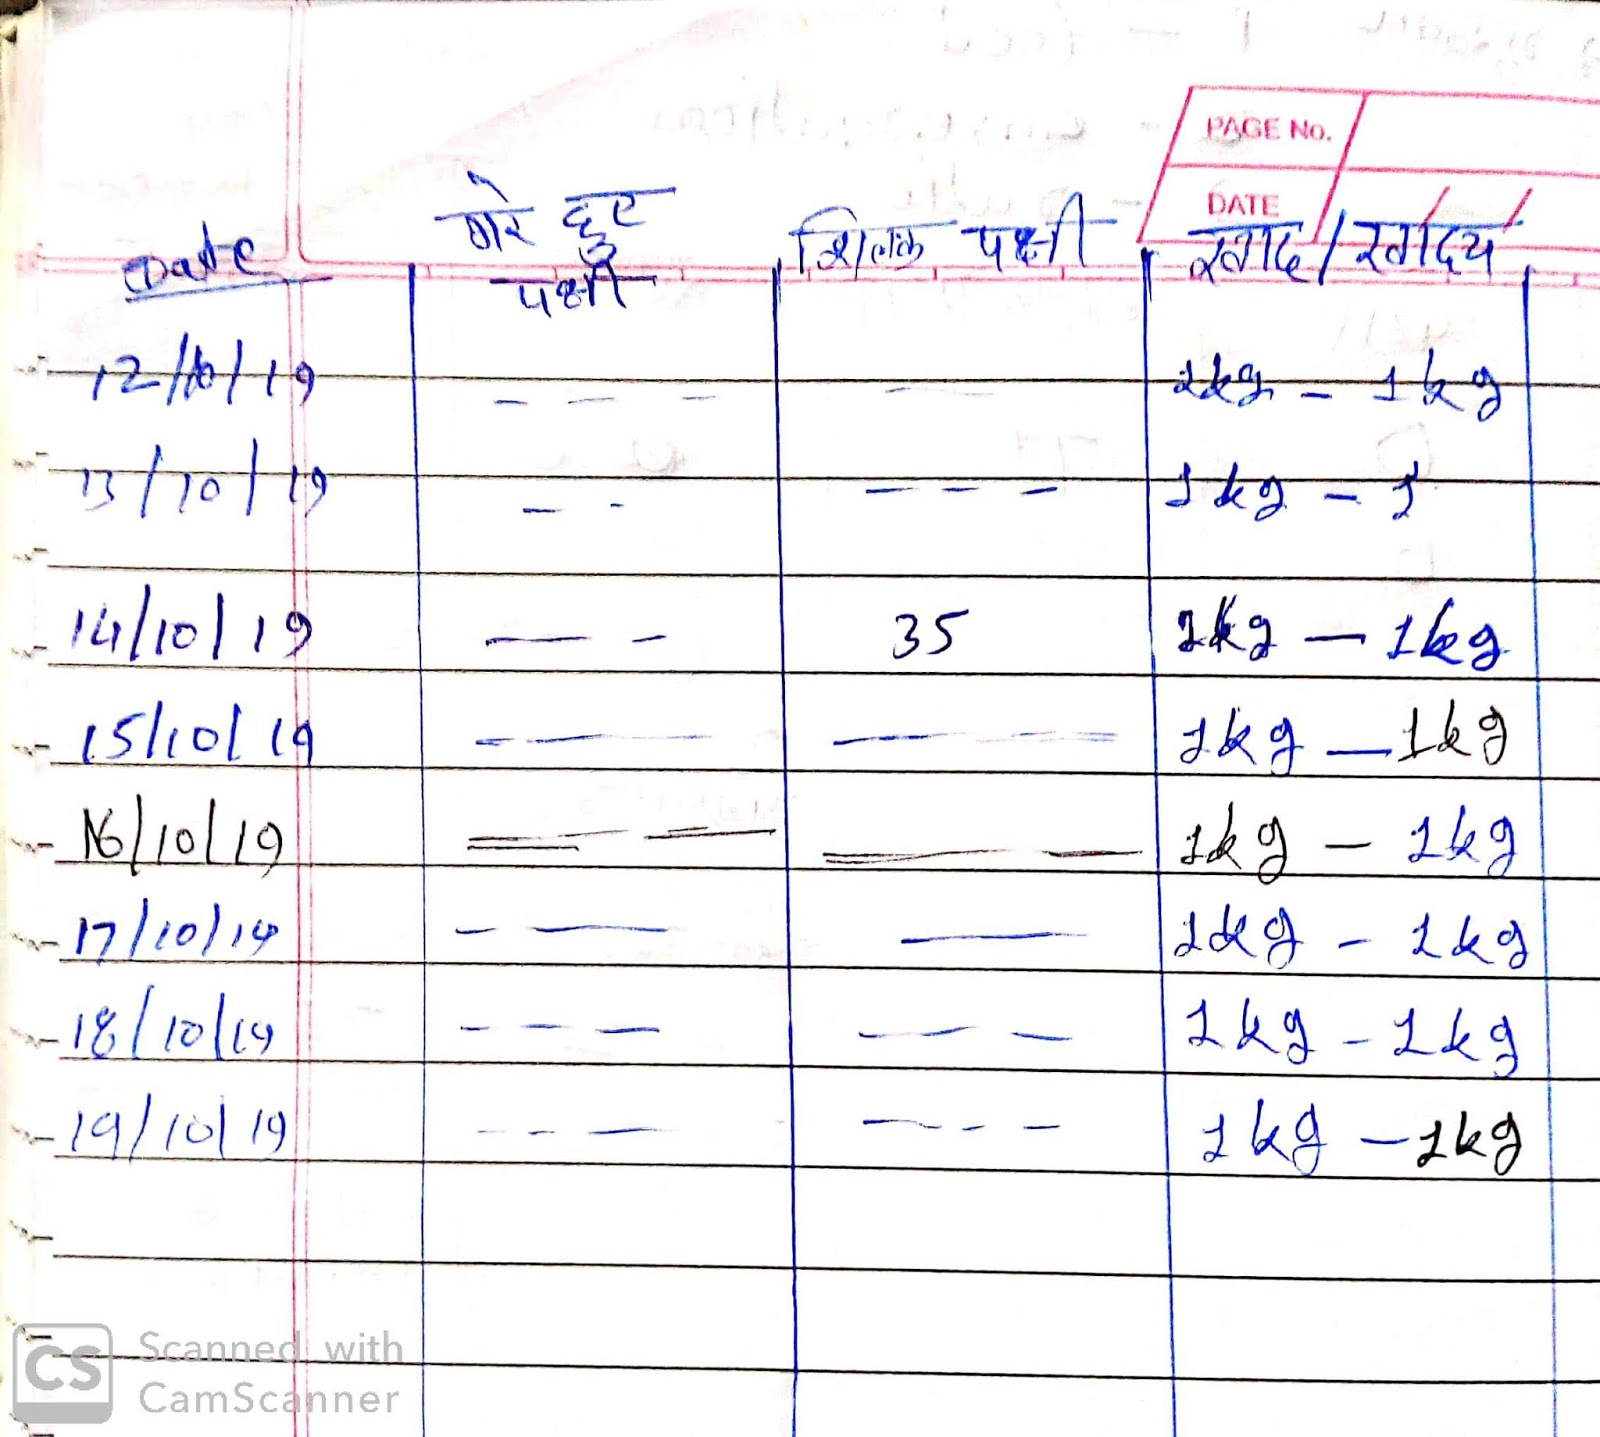 PAGE No.
DATE
Date	मरे हुए पक्षी	शिल्लक पक्षी	खाद / खादय
12/10/19	- - -	- -	1kg - 1kg
13/10/19	- -	- - -	1kg - 1
14/10/19	- -	35	1kg - 1kg
15/10/19	- -	- -	1kg - 1kg
16/10/19	- -	- -	1kg - 1kg
17/10/19	- -	-	1kg - 1kg
18/10/19	- - -	- -	1kg - 1kg
19/10/19	- - -	- - -	1kg - 1kg
CS Scanned with
CamScanner